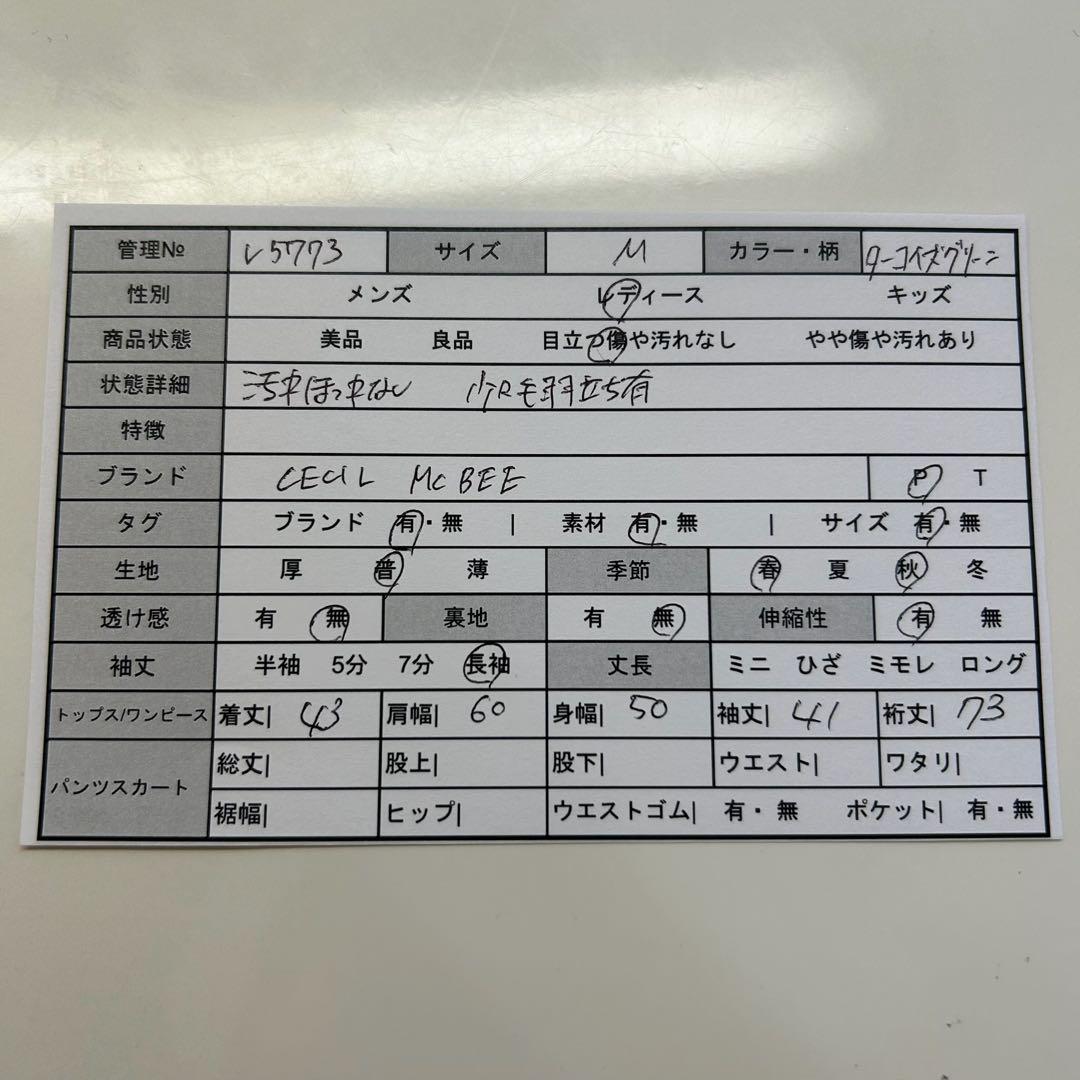 管理№ レ5773 サイズ M カラー・柄 ターコイズグリーン
性別 メンズ レディース キッズ
商品状態 美品 良品 目立つ傷や汚れなし やや傷や汚れあり
状態詳細 汚れほつれなし 少し毛羽立ち有
特徴
ブランド CECIL McBEE P T
タグ ブランド 有・無 | 素材 有・無 | サイズ 有・無
生地 厚 普 薄 季節 春 夏 秋 冬
透け感 有 無 裏地 有 無 伸縮性 有 無
袖丈 半袖 5分 7分 長袖 丈長 ミニ ひざ ミモレ ロング
トップス/ワンピース 着丈| 43 肩幅| 60 身幅| 50 袖丈| 41 裄丈| 73
パンツスカート 総丈| 股上| 股下| ウエスト| ワタリ|
裾幅| ヒップ| ウエストゴム| 有・無 ポケット| 有・無